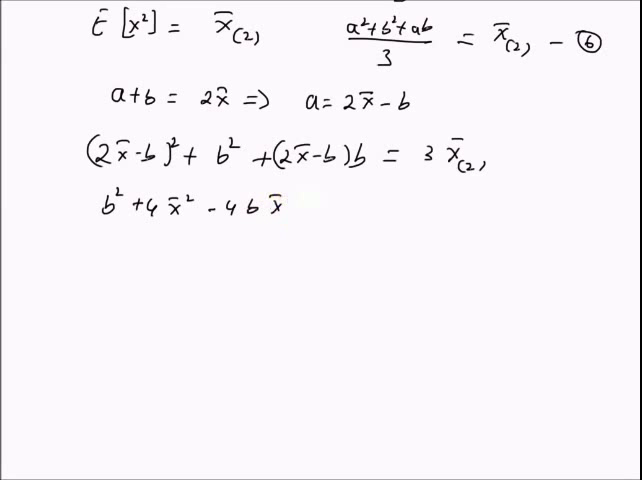 E[x²] = x̄₍₂₎    (a²+b²+ab)/3 = x̄₍₂₎ – ⑥
a+b = 2x̄ => a = 2x̄ – b
(2x̄–b)² + b² + (2x̄–b)b = 3 x̄₍₂₎
b² + 4x̄² – 4bx̄